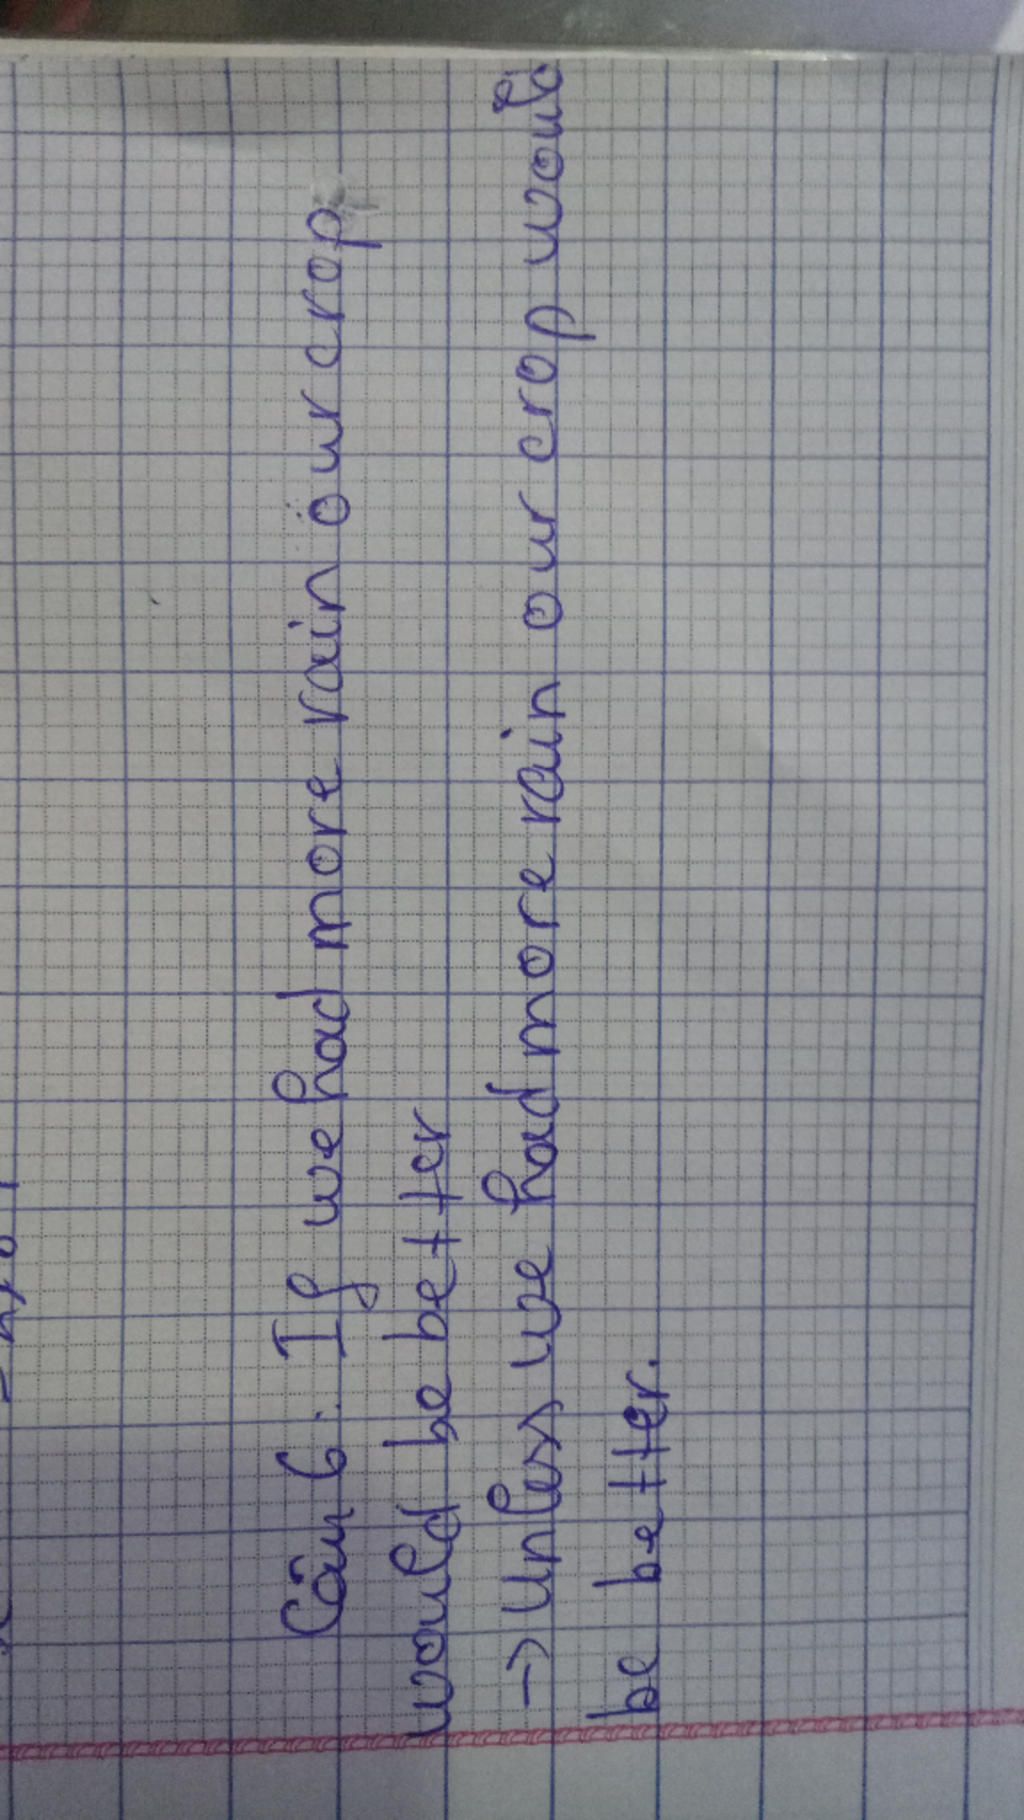 Câu 6: If we had more rain our crop
would be better
→ unless we had more rain our crop would
be better.